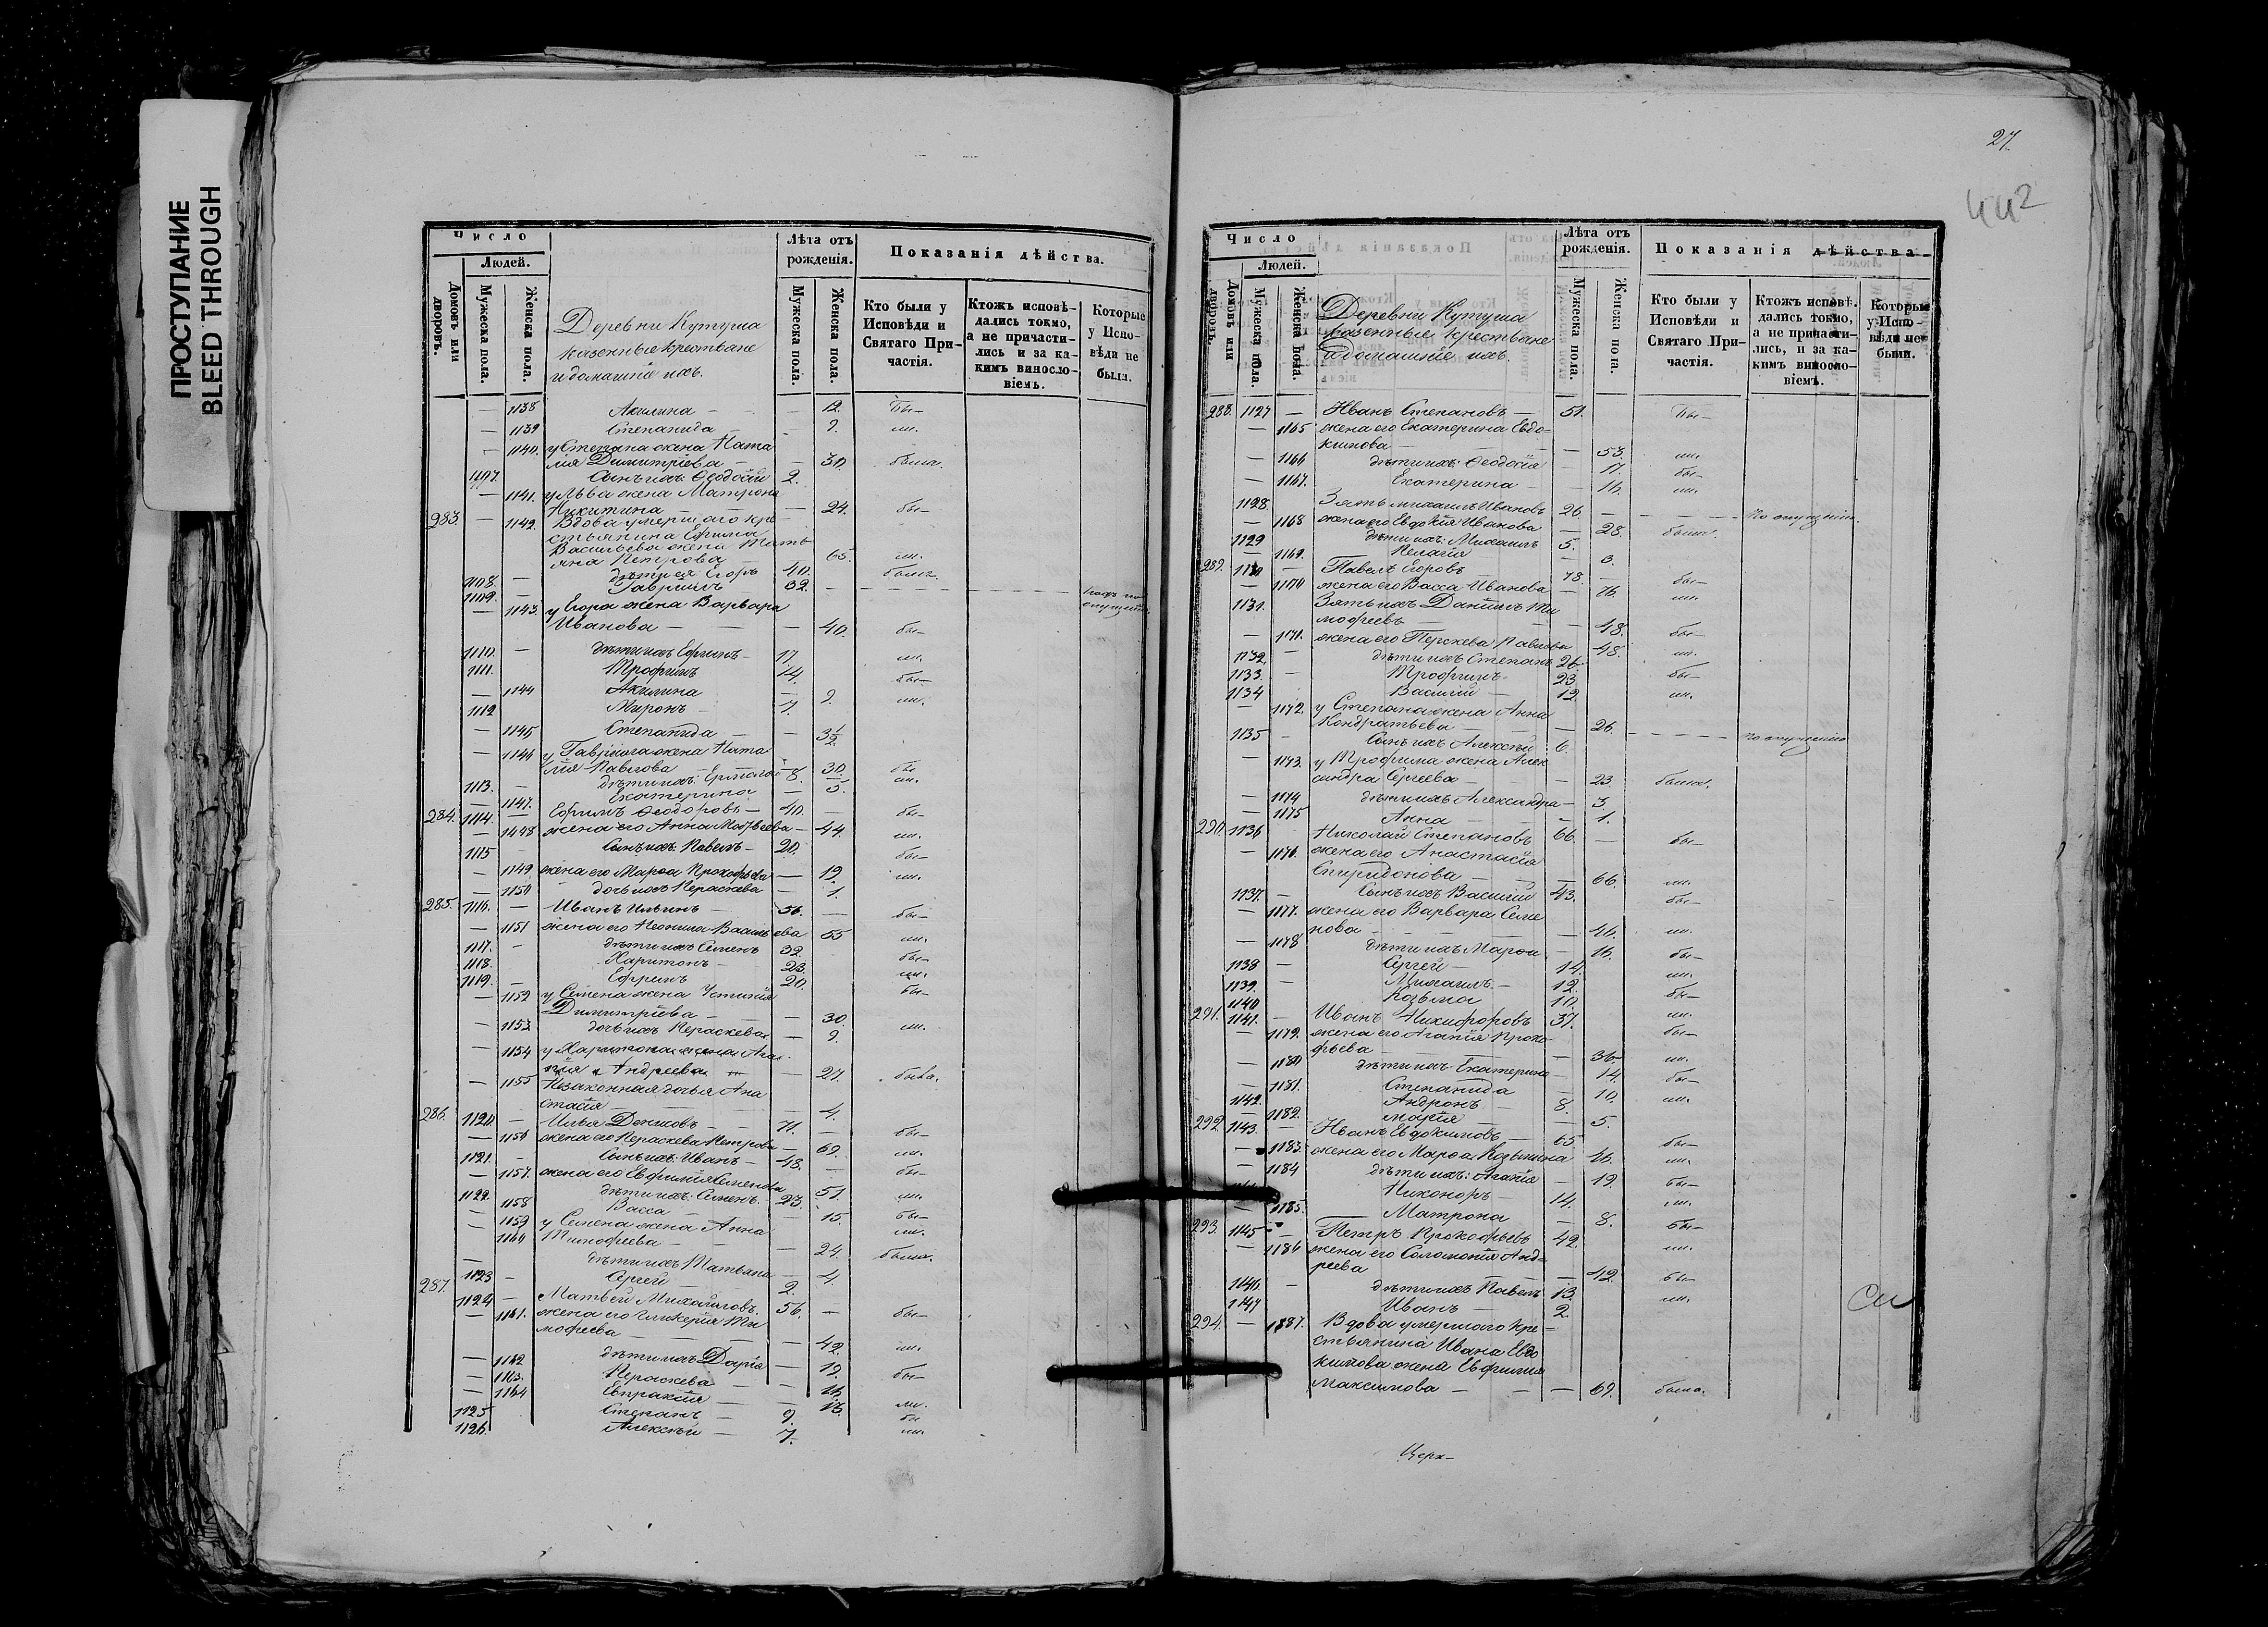 ПРОСТУПАНИЕ
BLEED THROUGH
Число
Людей.
Домовъ или дворовъ.
Мужеска пола.
Женска пола.
Деревни Кутуша
казенные крестьяне
и домашніе ихъ.
Лѣта отъ рожденія.
Мужеска пола.
Женска пола.
Показанія дѣйства.
Кто были у Исповѣди и Святаго Причастія.
Ктожъ исповѣдались токмо, а не причастились и за какимъ винословіемъ.
Которые у Исповѣди не были.
— 1138 Акилина — 12. бы—
— 1139 Степанида — 9. ли.
— 1140. у Степана жена Ната
лія Димитріева — 30. была.
1107. Сынъ ихъ Ѳеодосій 2.
— 1141. у Льва жена Матрона
Никитина — 24. бы—
283. — 1142. Вдова умершаго кре
стьянина Ефима
Васильева жена Тать
яна Петрова — 65. ли.
1108. — дѣти ея Егоръ 40. были.
1109. — Гавріилъ 32.
— 1143. у Егора жена Варвара
Иванова — 40. бы—
1110. — дѣти ихъ Ефимъ 17. ли.
1111. Трофимъ 14. бы—
— 1144 Акилина — 9. ли.
1112 Миронъ — 7.
— 1145 Степанида — 3½
— 1146 у Гавріила жена Ната
лія Павлова — 30. бы
1113. — дѣти ихъ: Ермолай 8. ли.
— 1147. Екатерина — 5.
284. 1114. — Ефимъ Ѳеодоровъ — 40. бы—
— 1148 жена его Анна Матвѣева — 44. ли.
1115 Сынъ ихъ: Павелъ — 20. бы—
— 1149. жена его Марѳа Прокофьева — 19. ли.
— 1150 дочь ихъ Параскева — 1.
285. 1116. — Иванъ Ильинъ — 56. бы—
— 1151 жена его Неонила Васильева 55 ли.
1117. — дѣти ихъ Семенъ 32. бы—
1118. Харитонъ — 23. ли.
1119. — Ефимъ 20. бы—
— 1152 у Семена жена Устинія
Димитріева — 30. ли.
— 1153 дочь ихъ Параскева — 9.
— 1154 у Харитона жена Ага
пія Андреева — 27. была.
— 1155 Незаконная дочь я Ана
стасія — 4.
286. 1120. — Илья Денисовъ — 71. бы—
— 1156 жена его Параскева Петрова 69. ли.
1121. — Сынъ ихъ: Иванъ — 48. бы—
— 1157. жена его Евфимія Семенова 51. ли.
1122. дѣти ихъ: Семенъ 23. бы—
— 1158 Васса — 15. ли.
— 1159 у Семена жена Анна
Тимофеева — 24. была.
— 1160 дѣти ихъ Татьяна — 4.
1123 — Сергей — 2.
287. 1124 — Матвей Михайловъ. 56. бы—
— 1161. жена его Гликерія Ти
мофеева — 42. ли.
— 1162 дѣти ихъ Дарія — 19. бы—
— 1163. Параскева — 16. ли.
— 1164 Евпраксія — 13. бы
1125 Степанъ — 9. ли.
1126. Алексѣй — 7.
27.
442
Число
Людей.
Домовъ или дворовъ.
Мужеска пола.
Женска пола.
Деревни Кутуша
казенные крестьяне
и домашніе ихъ.
Лѣта отъ рожденія.
Мужеска пола.
Женска пола.
Показанія дѣйства
Кто были у Исповѣди и Святаго Причастія.
Ктожъ исповѣдались токмо, а не причастились, и за какимъ винословіемъ.
Которые у Исповѣди не были.
288. 1127 — Иванъ Степановъ — 51. бы—
— 1165 жена его Екатерина Евдо-
кимова — 53. ли.
— 1166 дѣти ихъ: Ѳеодосія — 17. бы—
— 1167. Екатерина — 16. ли.
1128. Зять Михаилъ Ивановъ 26. по опущенію.
— 1168 жена его Евдокія Иванова — 28. были.
1129 дѣти ихъ: Михаилъ 5.
— 1169. Пелагія — 3.
289. 1130 — Павелъ Егоровъ — 78. бы—
— 1170 жена его Васса Иванова — 76. ли.
1131. Зять ихъ Даніилъ Ти
мофеевъ — 48. бы—
— 1171. жена его Перскева Павлова 48. ли.
1132. — дѣти ихъ Степанъ 26. бы—
1133. — Трофимъ 23. ли.
1134 Василій — 12.
— 1172. у Степана жена Анна
Кондратьева — 26. по опущенію
1135 — Сынъ ихъ Алексѣй 6.
— 1173. у Трофима жена Алек
сандра Сергеева — 23. были.
— 1174 дѣти ихъ Александра — 3.
— 1175 Анна — 1.
290. 1136 Николай Степановъ 66. бы—
— 1176. жена его Анастасія
Спиридонова — 66. ли.
1137. — Сынъ ихъ Василій 43. бы—
— 1177. жена его Варвара Семе
нова — 46. ли.
— 1178 дѣти ихъ Марѳа — 16. бы—
1138 — Сергей — 14. ли.
1139. — Михаилъ — 12. бы—
1140 Козьма 10. ли.
291. 1141. — Иванъ Никифоровъ 37. бы—
— 1179. жена его Агапія Проко-
фьева — 36 ли.
— 1180 дѣти ихъ Екатерина — 14. бы—
— 1181. Степанида — 10. ли.
1142. Андронъ — 8.
— 1182. Марія — 5.
292. 1143. — Иванъ Евдокимовъ — 65 бы—
— 1183. жена его Марѳа Козьмина 46. ли.
— 1184 дѣти ихъ: Агапія — 19. бы—
Никоноръ — 14. ли.
— 1185. Матрона — 8. бы—
293. 1145 — Петръ Прокофьевъ 42. ли.
— 1186 жена его Соломонія Анд-
реева — 42. бы—
1146. — дѣти ихъ Павелъ 13. ли.
1147 Иванъ — 2.
294. — 1187. Вдова умершаго кре-
стьянина Ивана Евдо
кимова жена Евфимія
Максимова — 69. была.
Церк—